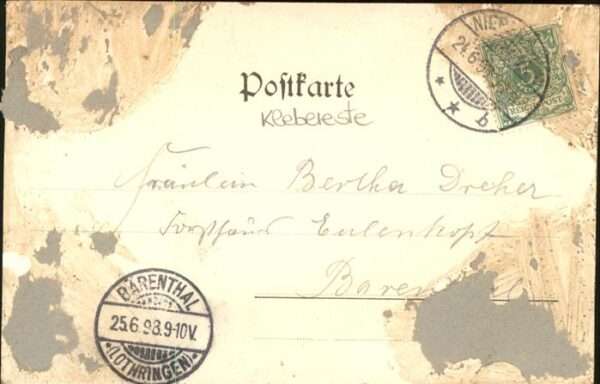 Postkarte
Klebereste
NIE
24.6.9
5
POST
b
Fräulein Bertha Dreher
Forsthaus Eulenkopf
BÄRENTHAL
25.6.98.9-10V.
(LOTHRINGEN)